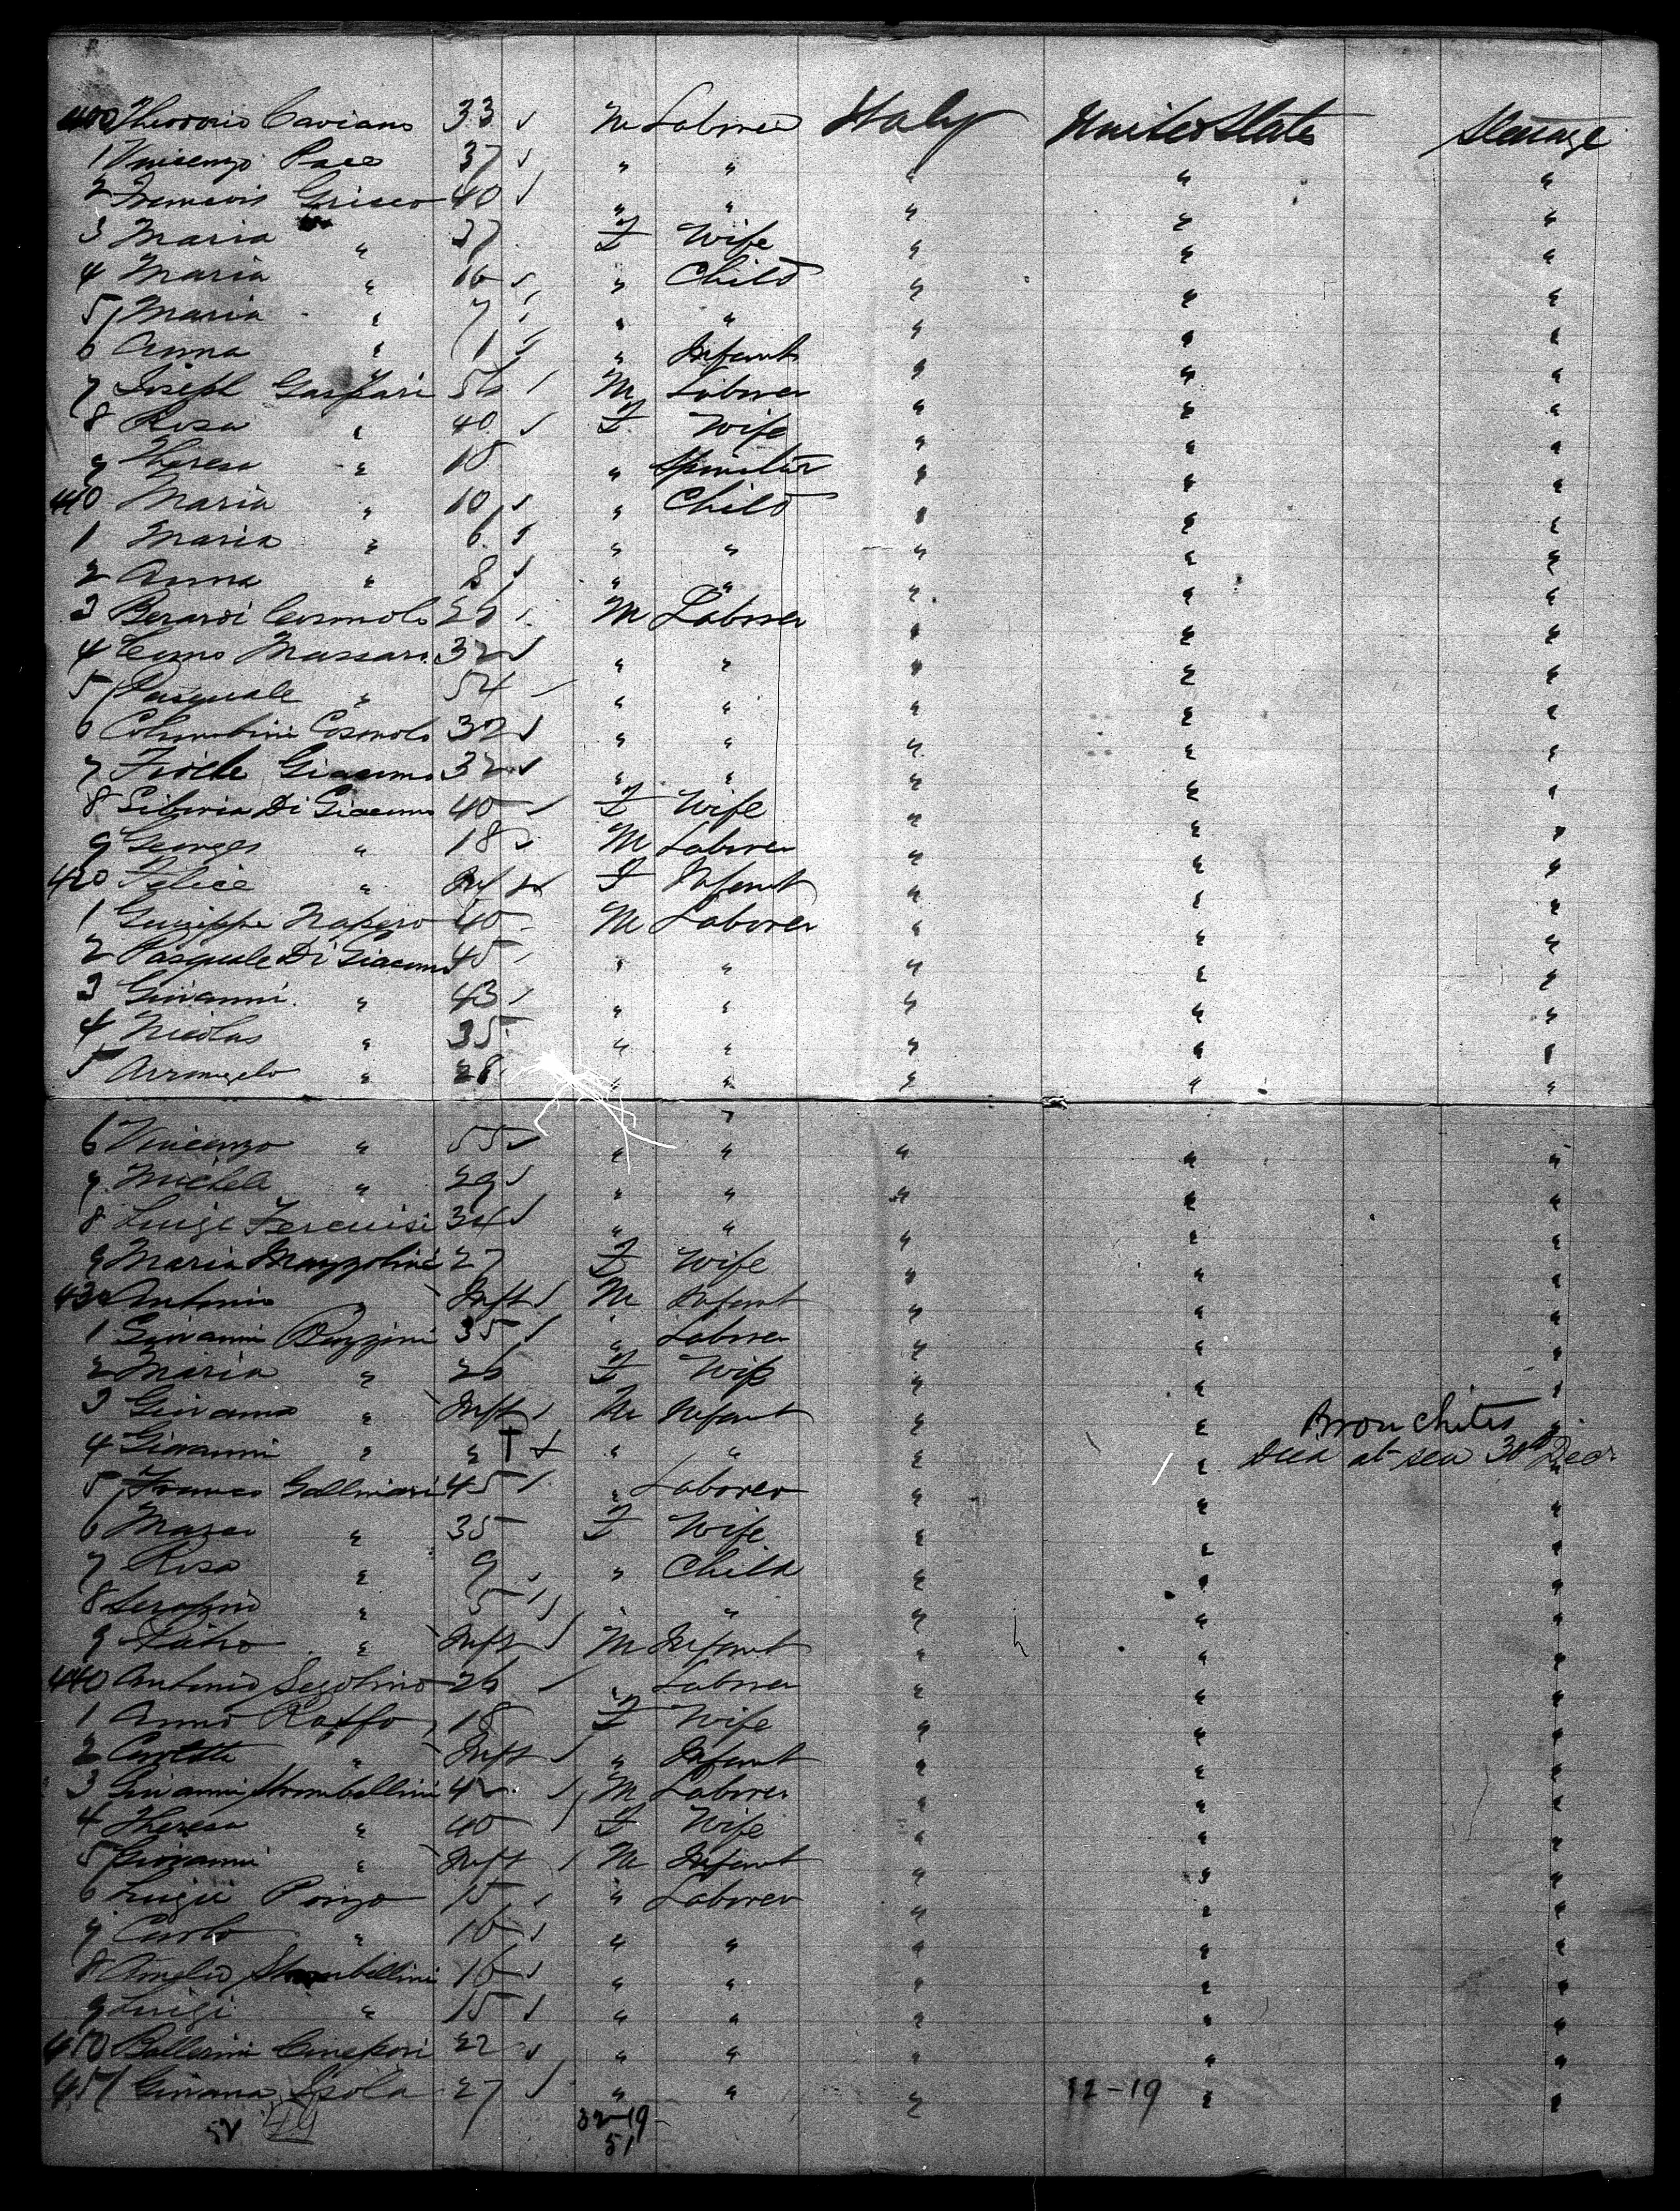 400 Theodoric Caviano 33 M Laborer Italy United States Steerage
1 Vincenzo Pace 37 " " " " "
2 Grieco 40 " " " " "
3 Maria " 37 F Wife " " "
4 Maria " 16 " Child " " "
5 Maria " 7 " " " " "
6 Anna " 1 " Infant " " "
7 Joseph Gaspari 56 M Laborer " " "
8 Rosa " 40 F Wife " " "
9 Theresa " 18 " Spinster " " "
410 Maria " 10 " Child " " "
1 Maria " 6 " " " " "
2 Anna " 8 " " " " "
3 Berardi Cosmolo 26 M Laborer " " "
4 Massaro 32 " " " " "
5 Pasquale " 54 " " " " "
6 Columbini Cosmolo 32 " " " " "
7 Giacomo 32 " " " " "
8 Liboria Di Giacomo 40 F Wife " " "
9 Georges " 18 M Laborer " " "
420 Felice " Inf F Infant " " "
1 Guiseppe Napero 40 M Laborer " " "
2 Pasquale Di Giacomo 45 " " " " "
3 Giovanni " 43 " " " " "
4 Nicolas " 35 " " " " "
5 Arrangelo " 28 " " " " "
6 Vincenzo " 55 " " " " "
7 Michele " 29 " " " " "
8 Luigi 34 " " " " "
9 Maria Mazzolini 27 F Wife " " "
430 Antonio " Inft M Infant " " "
1 Giovanni Buzzini 35 " Laborer " " "
2 Maria " 26 F Wife " " "
3 " Inft M Infant " " "
Bronchites
4 Giovanni " " † " " " " Died at sea 30th Decr "
5 Franco Gallinari 45 " Laborer " " "
6 " 35 F Wife " " "
7 Rosa " 9 " Child " " "
8 Serafino " 5 " " " " "
9 Pietro " Inft M Infant " " "
440 Antonio Segolino 26 " Laborer " " "
1 Anna Raffo 18 F Wife " " "
2 Carlotta " Inft " Infant " " "
3 Giovanni Strombellini 42 M Laborer " " "
4 Theresa " 40 F Wife " " "
5 Giovanni " Inft M Infant " " "
6 Luigi Ponzo 15 " Laborer " " "
7 Carlo " 16 " " " " "
8 Strombellini 16 " " " " "
9 Luigi " 15 " " " " "
450 Ballerini 22 " " " " "
451 Isola 27 " " " 12-19 " "
52 49 32-19
51